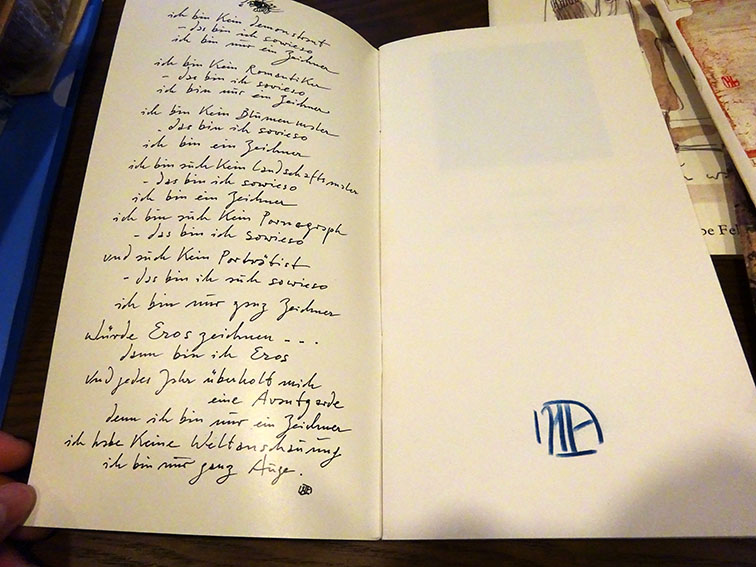 ich bin kein Demonstrant
- das bin ich sowieso
ich bin nur ein Zeichner
ich bin kein Romantiker
- das bin ich sowieso
ich bin nur ein Zeichner
ich bin kein Blumenmaler
- das bin ich sowieso
ich bin ein Zeichner
ich bin auch kein Landschaftsmaler
- das bin ich sowieso
ich bin ein Zeichner
ich bin auch kein Pornograph
- das bin ich sowieso
und auch kein Porträtist
- das bin ich auch sowieso
ich bin nur ganz Zeichner
würde Eros zeichnen - - -
dann bin ich Eros
und jedes Jahr überholt mich
eine Avantgarde
denn ich bin nur ein Zeichner
ich habe keine Weltanschauung
ich bin nur ganz Auge.